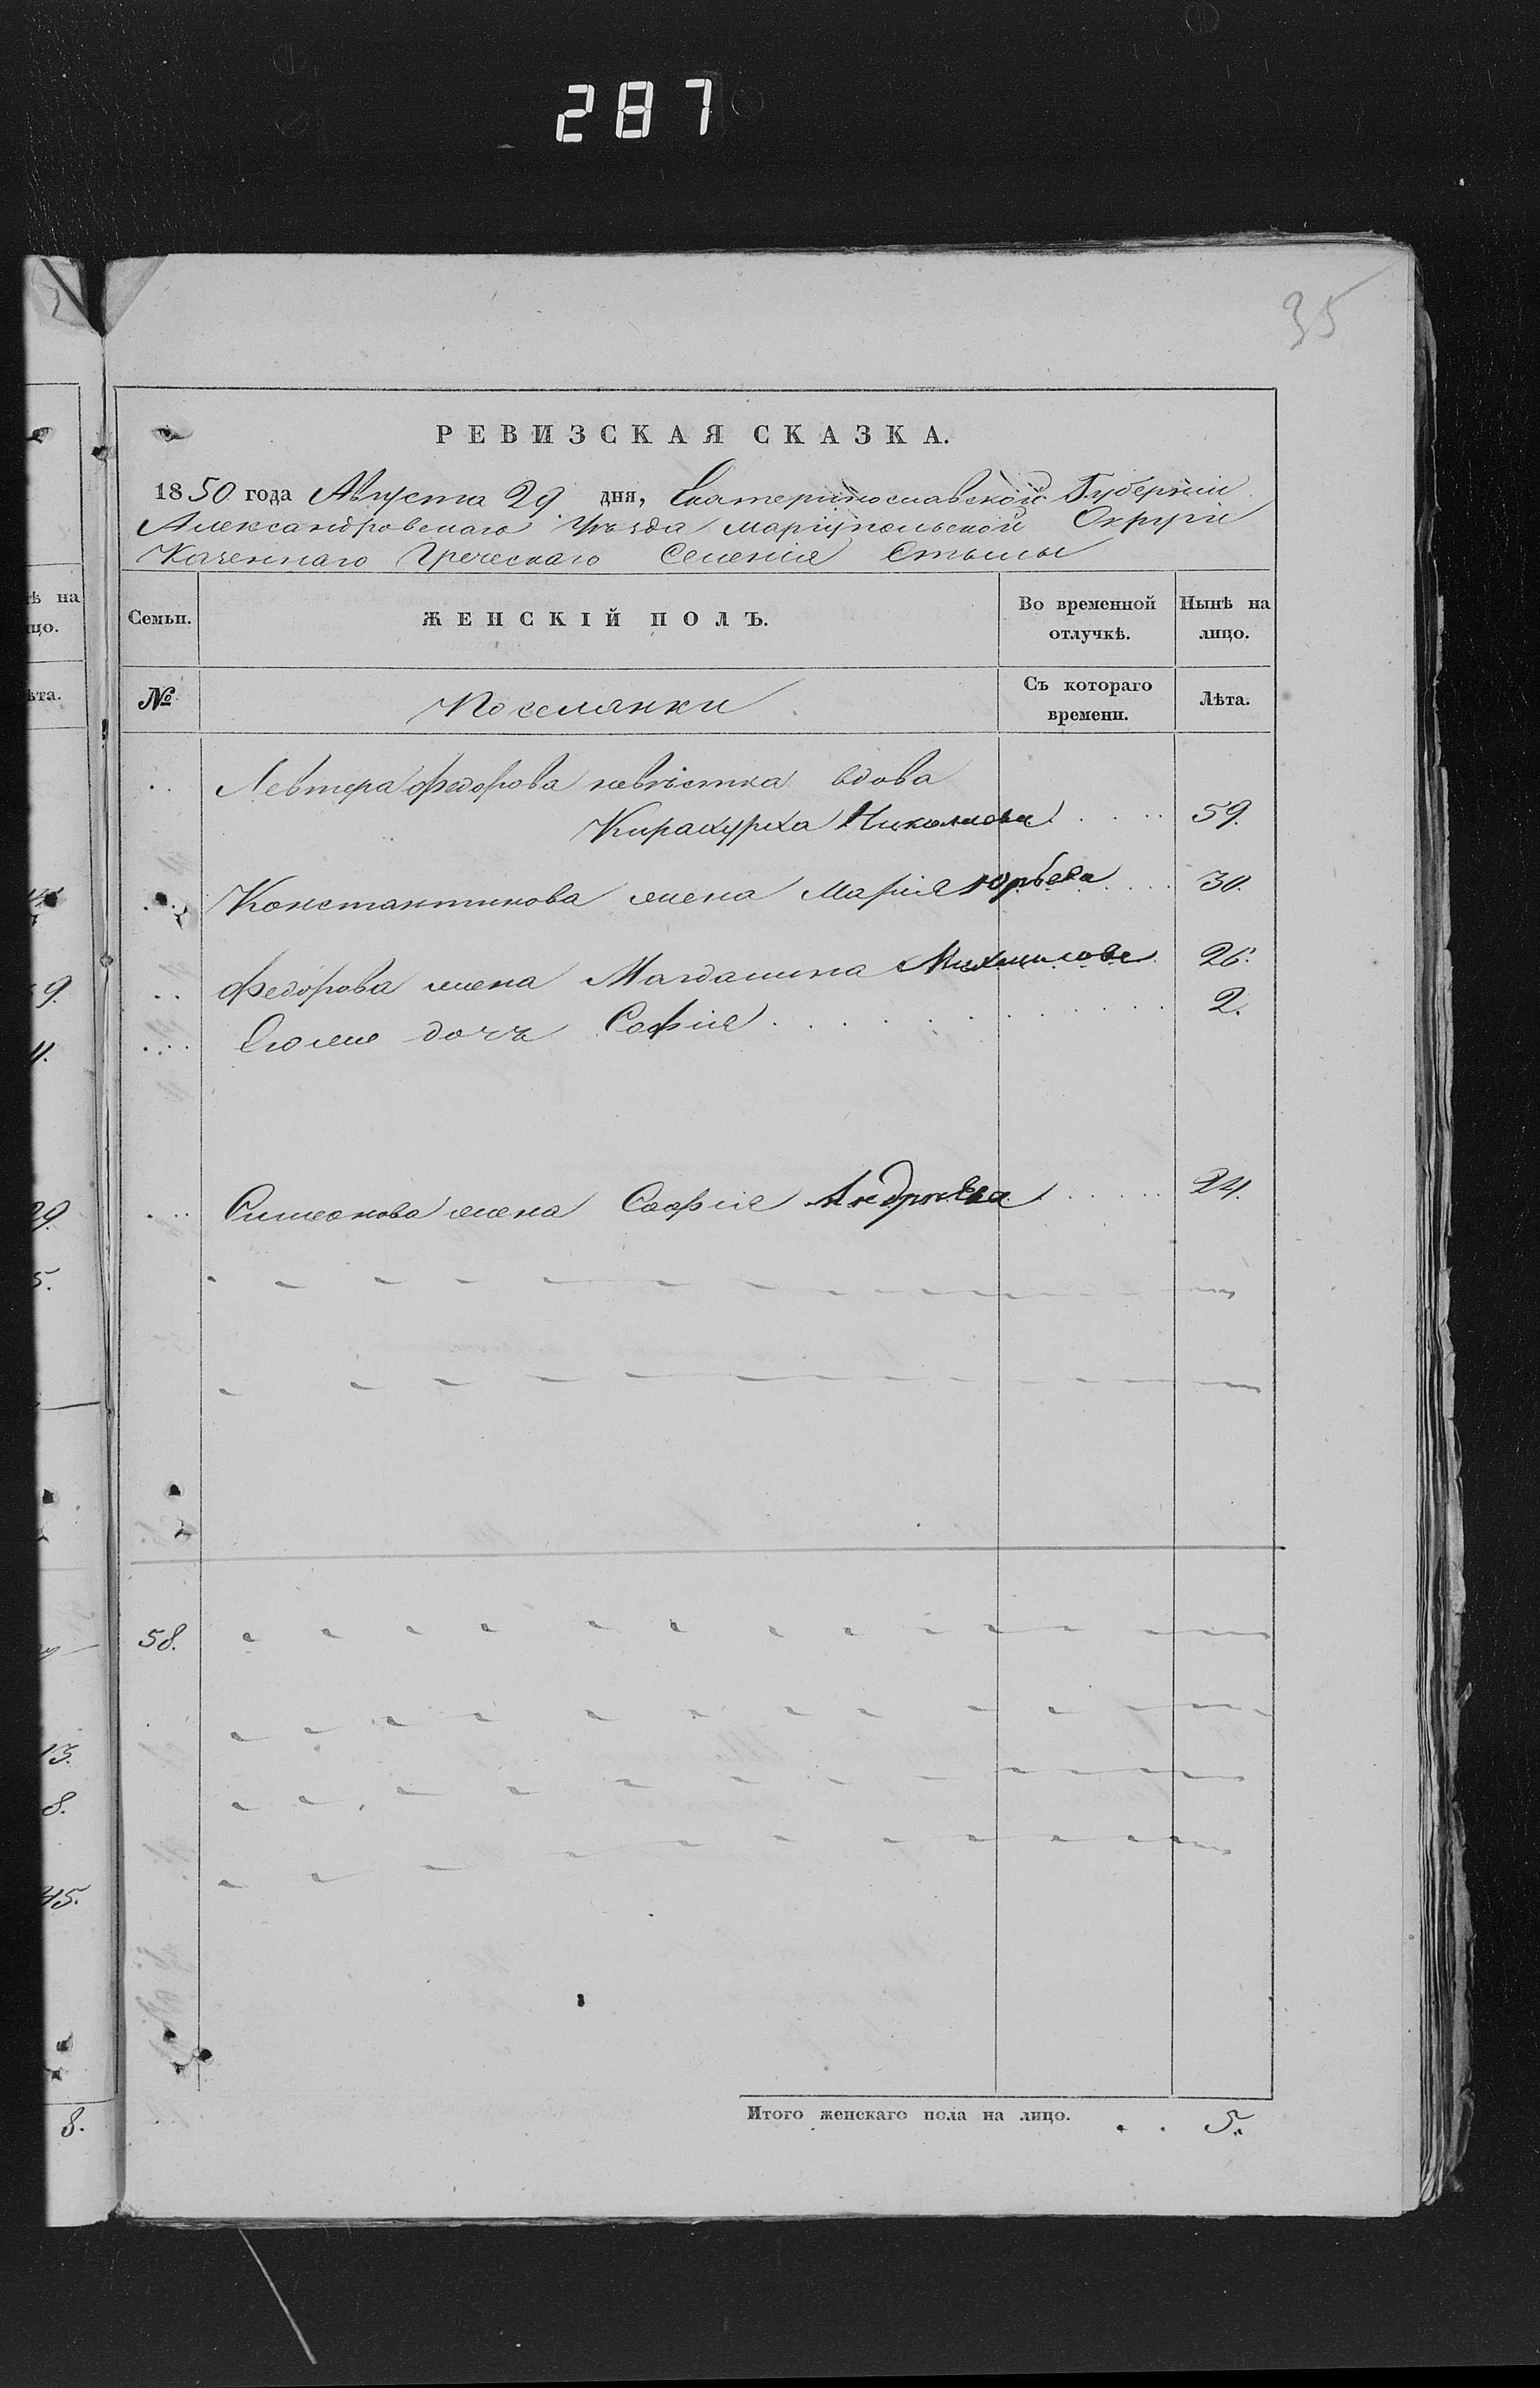 287
35
РЕВИЗСКАЯ СКАЗКА.
1850 года Августа 29 дня, Екатеринославской Губерніи
Александровскаго Уѣзда Маріупольской Округи
Казеннаго Греческаго Селенія Стылы
Семьи. ЖЕНСКІЙ ПОЛЪ. Во временной отлучкѣ. Нынѣ на лицо.
№ Поселянки Съ котораго времени. Лѣта.
Левтера Федорова невѣстка вдова
Николаева 59.
Константинова жена Марія Юрьева 30.
Федорова жена Магдалина Михаилова 26.
Его же дочь Софія 2.
Симеонова жена Софія Андреева 24.
58.
Итого женскаго пола на лицо. 5.
ѣ на
цо.
ѣта.
9.
29.
5.
13.
8.
45.
8.